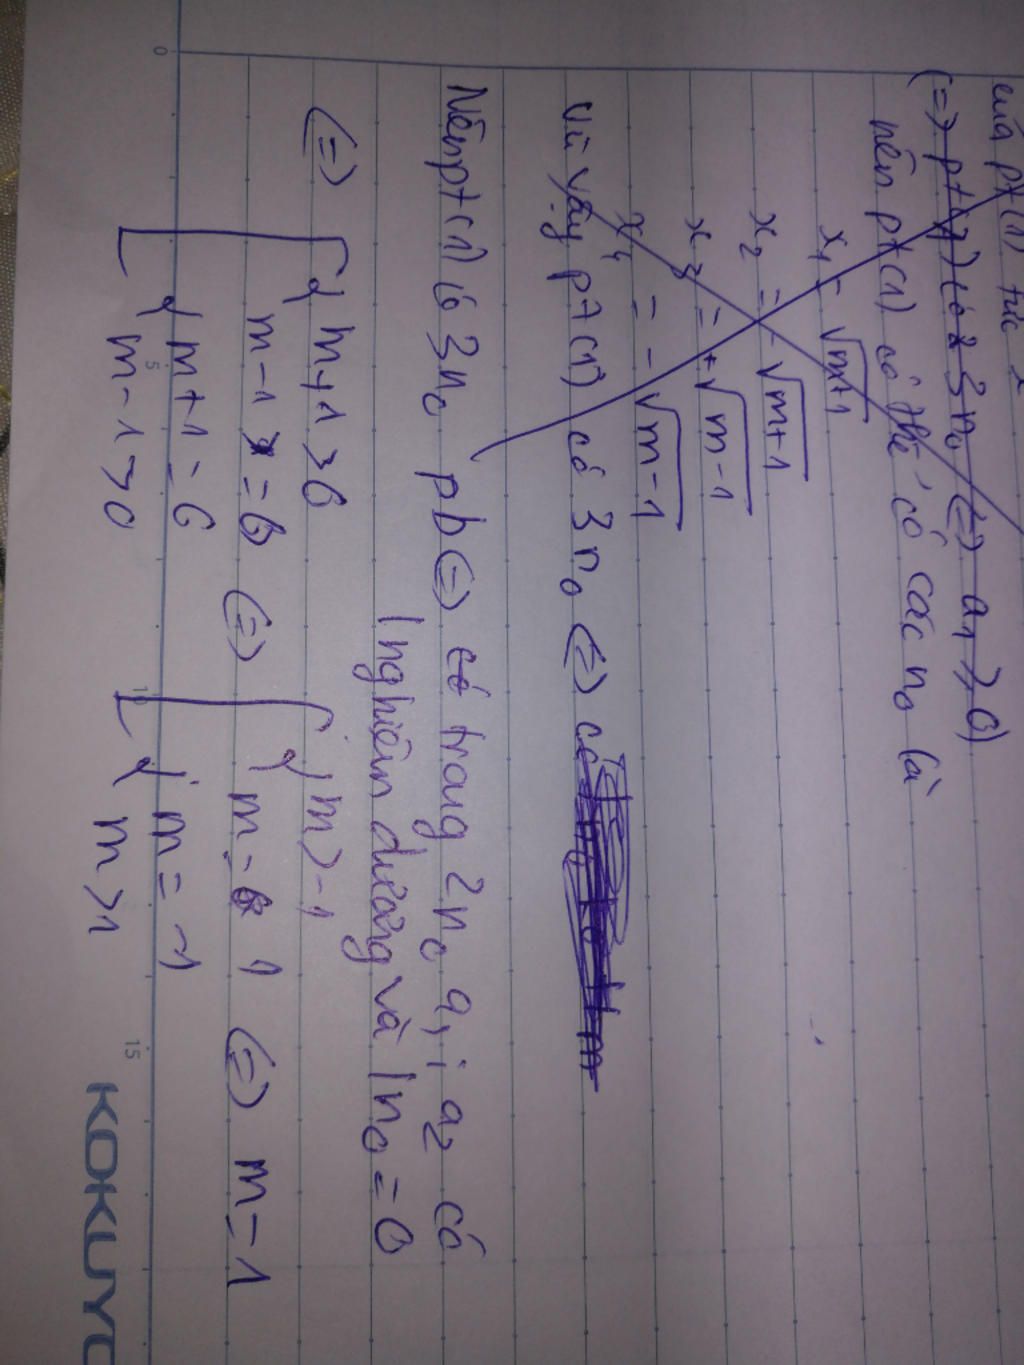 của pt (1) tức
(=> pt (1) có 3 no (=) a1 ≥ 0)
nên pt (1) có thể có các no là
x1 = √m+1
x2 = -√m+1
x3 = +√m-1
x4 = -√m-1
Vì vậy pt (1) có 3 no (=) có
Nên pt (1) có 3 no pb (=) có trong 2 no a1; a2 có
1 nghiệm dương và 1 no = 0
(=) [ { m+1 > 0
m-1 = 0 (=) [ { m > -1
m = 1 (=) m = 1
{ m+1 = 0
m-1 > 0
{ m = -1
m > 1
0
5
10
15
KOKUYO